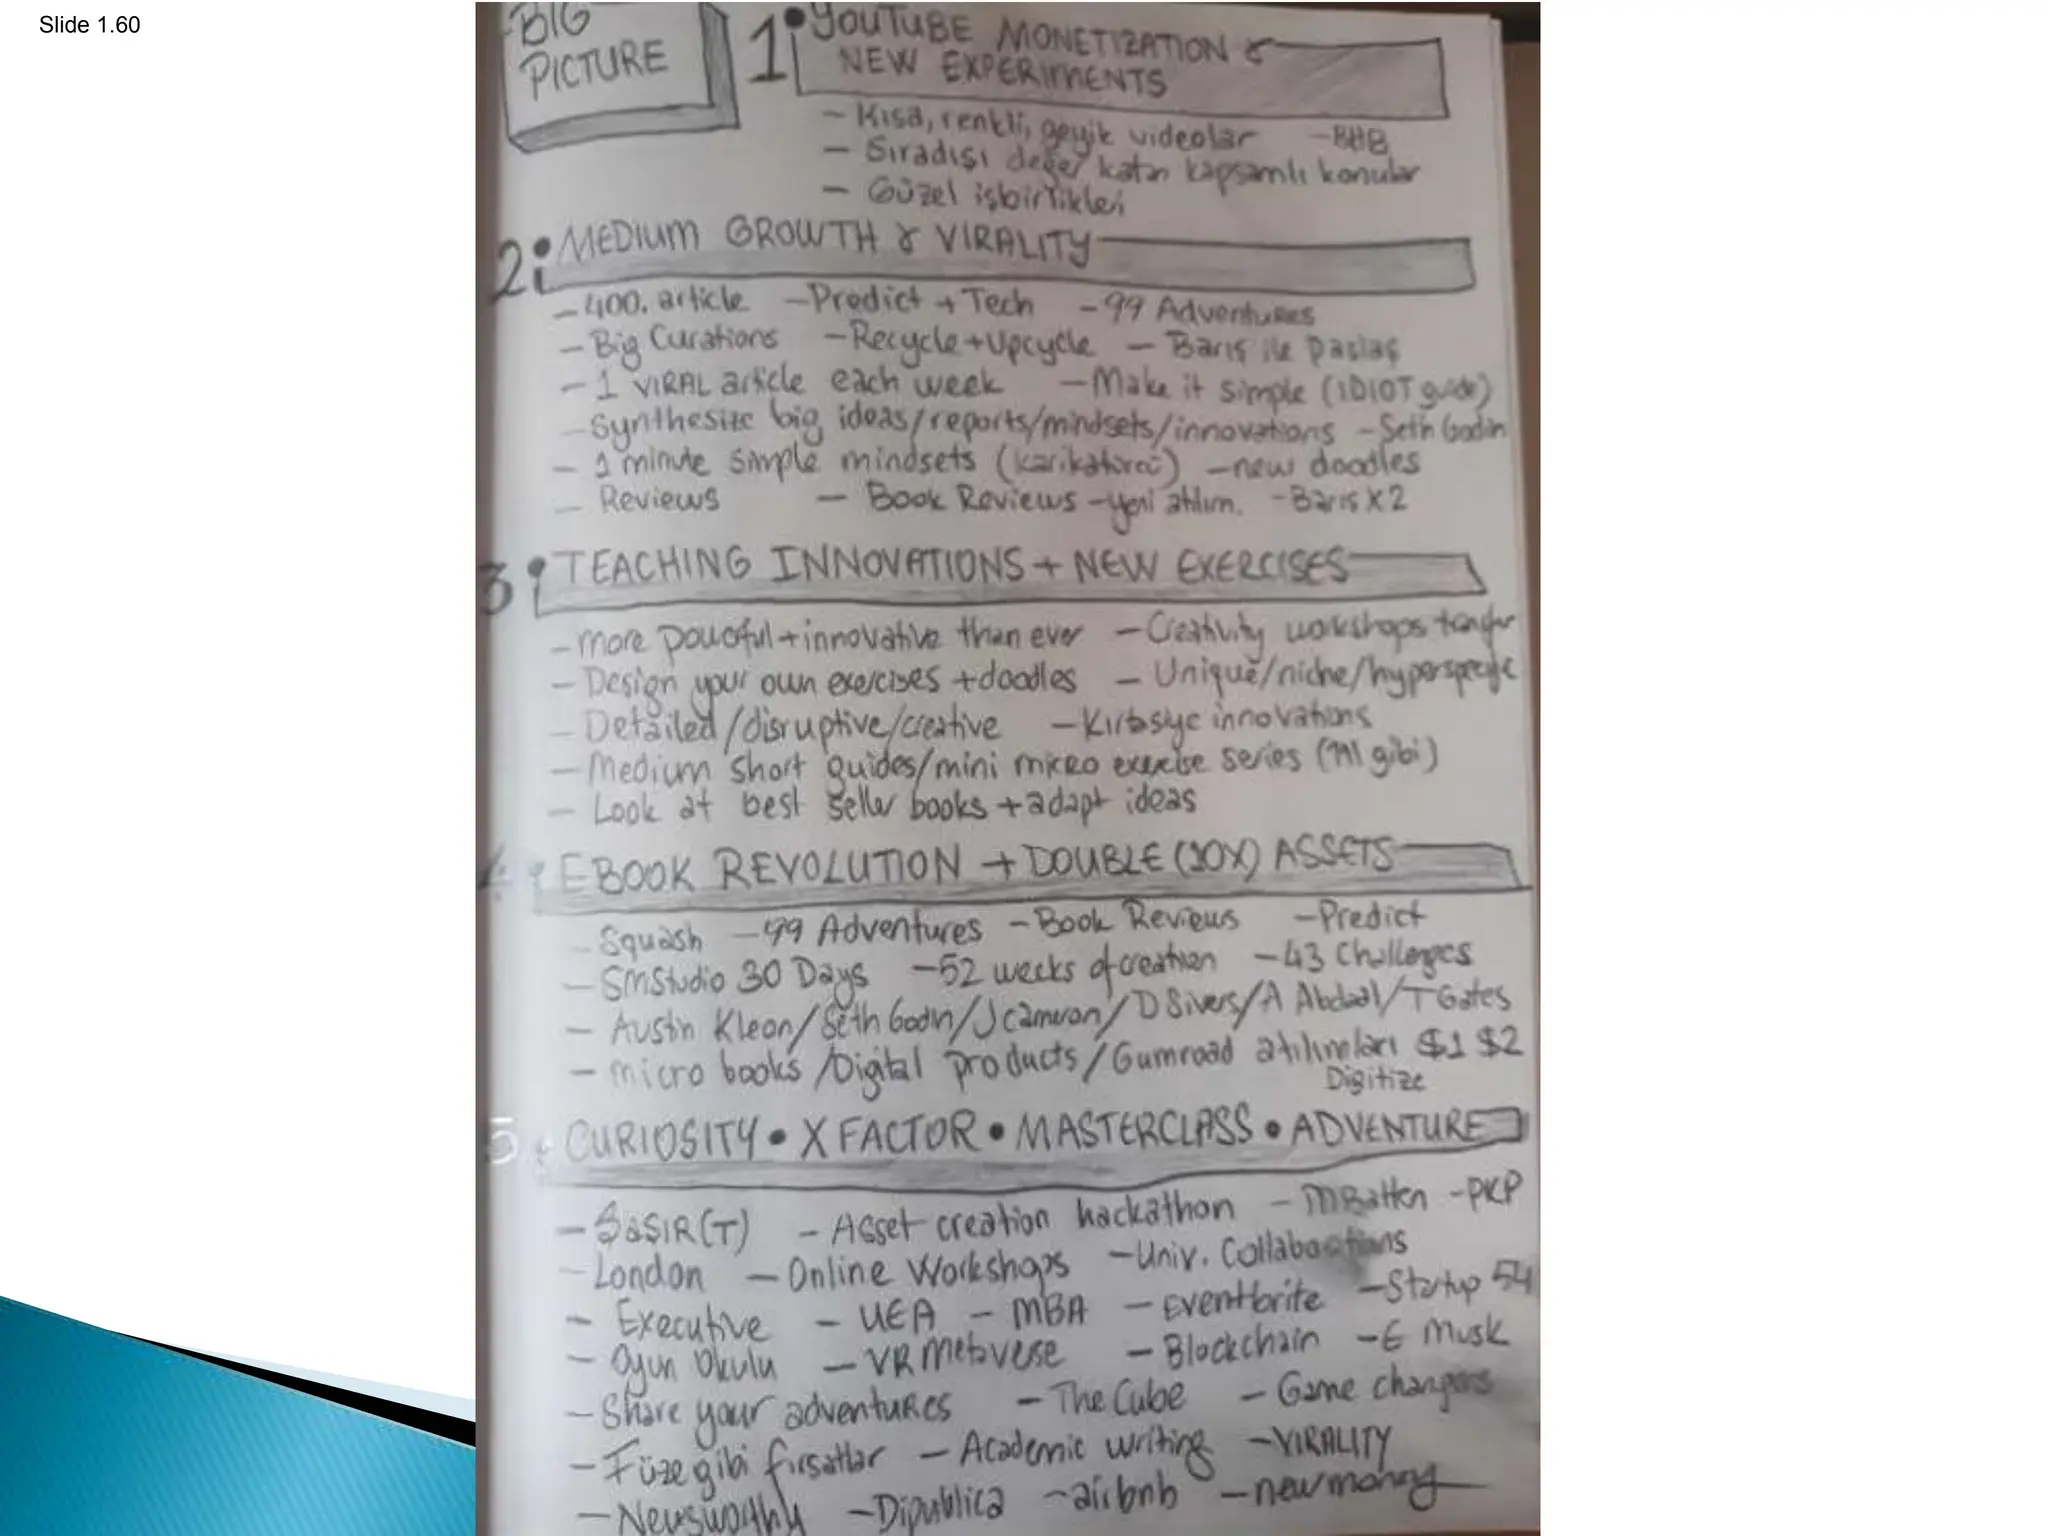 Slide 1.60
BIG
PICTURE
1. YOUTUBE MONETIZATION &
NEW EXPERIMENTS
- Kısa, renkli, geyik videolar - BHB
- Sıradışı değer katan kapsamlı konular
- Güzel işbirlikleri
2. MEDIUM GROWTH & VIRALITY
- 400. article - Predict + Tech - 99 Adventures
- Big Curations - Recycle + Upcycle - Barış ile paslaş
- 1 VIRAL article each week - Make it simple (IDIOT guide)
- Synthesize big ideas/reports/mindsets/innovations - Seth Godin
- 1 minute simple mindsets - new doodles
- Reviews - Book Reviews - yeni atılım. - Barış X 2
3. TEACHING INNOVATIONS + NEW EXERCISES
- more powerful + innovative than ever - Creativity workshops transfer
- Design your own exercises + doodles - Unique/niche/hyperspecific
- Detailed/disruptive/creative - Kırtasiye innovations
- Medium short guides/mini micro exercise series (gibi)
- Look at best seller books + adapt ideas
4. EBOOK REVOLUTION + DOUBLE (10X) ASSETS
- Squash - 99 Adventures - Book Reviews - Predict
- SMStudio 30 Days - 52 weeks of creation - 43 Challenges
- Austin Kleon/Seth Godin/J Cameron/D Sivers/A Abdaal/T Gates
- micro books/Digital products/Gumroad atılımları $1 $2
Digitize
5. CURIOSITY • X FACTOR • MASTERCLASS • ADVENTURE
- ŞaSIR(T) - Asset creation hackathon - MBatten - PKP
- London - Online Workshops - Univ. Collaborations
- Executive - UEA - MBA - Eventbrite - Startup 54
- Oyun Okulu - VR Metaverse - Blockchain - E Musk
- Share your adventures - The Cube - Game changers
- Füze gibi fırsatlar - Academic writing - VIRALITY
- Newsworthy - Dipublica - airbnb - new money